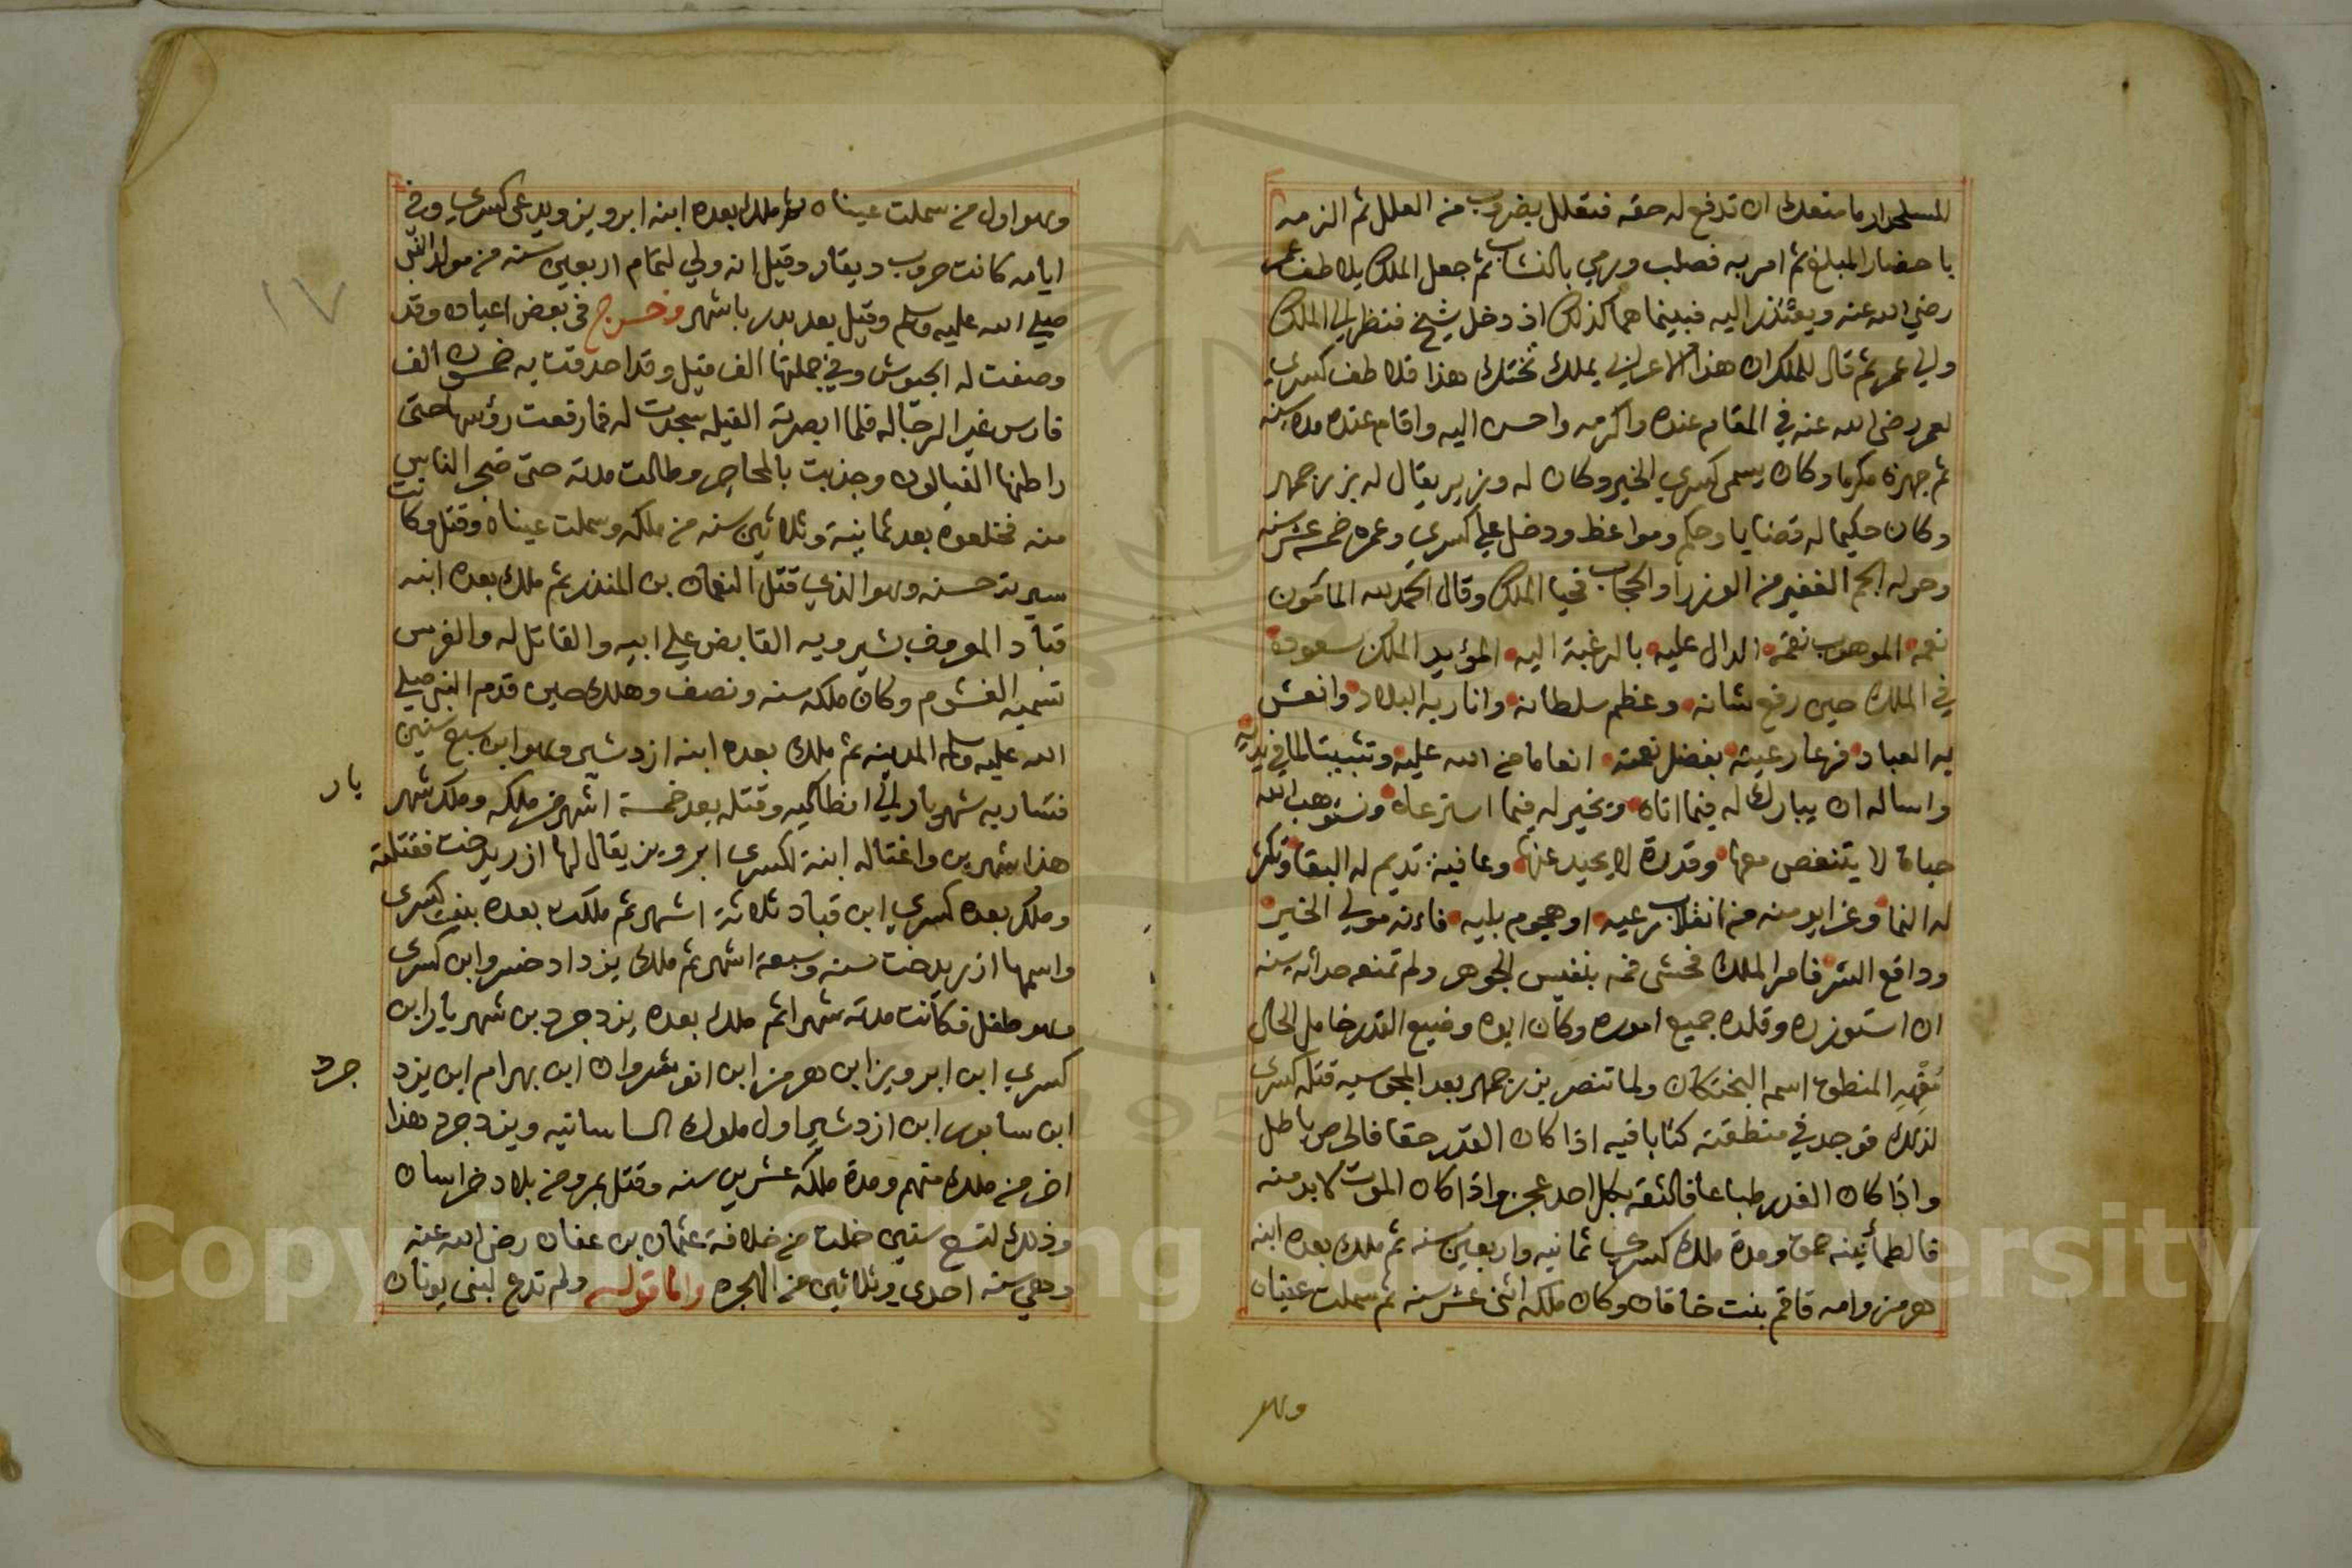 للسلحدار ما منعك ان تدفع له حقه فتعلل بضروب من العلل ثم الزمه
باحضار المبلغ ثم امر به فصلب ورمي بالنشاب ثم جعل الملك يلاطف عمر
رضي الله عنه ويعتذر اليه فبينما هما كذلك اذ دخل شيخ فنظر الى الملك
والي عمر ثم قال للملك ان هذا الاعرابي يملك تختك هذا فلاطف كسري
لعمر رضى الله عنه في المقام عنده واكرمه واحسن اليه واقام عنده مدة سنه
ثم جهزه مكرما وكان يسمى كسري الخير وكان له وزير يقال له بزرجمهر
وكان حكيما له قضايا وحكم ومواعظ ودخل علي كسري وعمره خمسة عشر سنه
وحوله الجم الغفير من الوزرا والحجاب فحيا الملك وقال الحمد لله المأمون
نعمه الموهوب نقمه الدال عليه بالرغبة اليه المؤيد الملك سعوده
في الملك حين رفع شانه وعظم سلطانه وانار به البلاد وانعش
به العباد فرعا رعيته بفضل نعمته انعاما من الله عليه وتثبيتا لما في يديه
واساله ان يبارك له فيما اتاه ويخير له فيما استرعاه ونستوهب الله
حياة لا يتنغص معها وقدرة لا يحيد عنها وعافية تديم له البقا وتكثر
له النما وعزا يومنه من انقلاب رعيه او هجوم بليه فاءنه مولي الخير
ودافع الشر فامر الملك فحشى فمه بنفيس الجوهر ولم تمنعه حداثه سنه
ان استوزره وقلده جميع اموره وكان ابوه وضيع القدر خامل الحال
المنطوق اسمه البختكان ولما تنصر بزرجمهر بعد المجوسيه قتله كسرى
لذلك فوجد في منطقته كتابا فيه اذا كان القدر حقا فالحرص باطل
واذا كان الغدر طباعا فالثقه بكل احد عجز واذا كان الموت لا بد منه
فالطمأنينه حمق ومدة ملك كسري ثمانيه واربعين سنه ثم ملك بعده ابنه
هرمز وامه فاقم بنت خاقان وكان ملكه اثنى عشر سنه ثم سملت عيناه
وهو
١٧
وهو اول من سملت عيناه ثم ملك بعده ابنه ابرويز ويدعى كسري وفي
ايامه كانت حروب ديقار وقيل انه ولي لتمام اربعين سنه من مولد النبى
صلي الله عليه وسلم وقيل بعد بدر باشهر وخرج في بعض اعياده وقد
وصفت له الجيوش وفي جملتها الف فيل وقد احدقت به خمسون الف
فارس غير الرجاله فلما ابصرته الفيله سجدت له فما رفعت رؤسها حتى
راطنها الفيالون وجذبت بالمحاجن وطالت مدته حتى ضجر الناس
منه فخلعوه بعد ثمانية وثلاثين سنه من ملكه وسملت عيناه وقتل وكانت
سيرته حسنه وهو الذي قتل النعمان بن المنذر ثم ملك بعده ابنه
قباد المعروف بشيرويه القابض على ابيه والقاتل له والفرس
تسميه الغشوم وكان ملكه سنه ونصف وهلك حين قدم النبى صلي
الله عليه وسلم المدينه ثم ملك بعده ابنه ازدشير وهو ابن سبع سنين
فتسار به شهريار الى انطاكيه وقتله بعد خمسة اشهر من ملكه وملك شهر
يار
هذا شهرين واغتاله ابنة لكسرى ابرويز يقال لها ازريدخت فقتلته
وملك بعده كسري ابن قباد ثلاثة اشهر ثم ملكت بعده بنت كسرى
واسمها ازريدخت سنه وسبعة اشهر ثم ملك يزداد خسروا بن كسرى
وهو طفل فكانت مدته شهرا ثم ملك بعده يزدجرد بن شهريار ابن
كسري ابن ابرويز ابن هرمز ابن انوشروان ابن بهرام ابن يزد
جرد
ابن سابور ابن ازدشير اول ملوك الساسانيه ويزدجرد هذا
اخر من ملك منهم ومدة ملكه عشرين سنه وقتل بمرو من بلاد خراسان
وذلك لتسع سنين خلت من خلافة عثمان بن عفان رضى الله عنه
وهي سنه احدى وثلاثين من الهجره واما قوله ولم تدع لبنى يونان
Copyright © King Saud University
1957